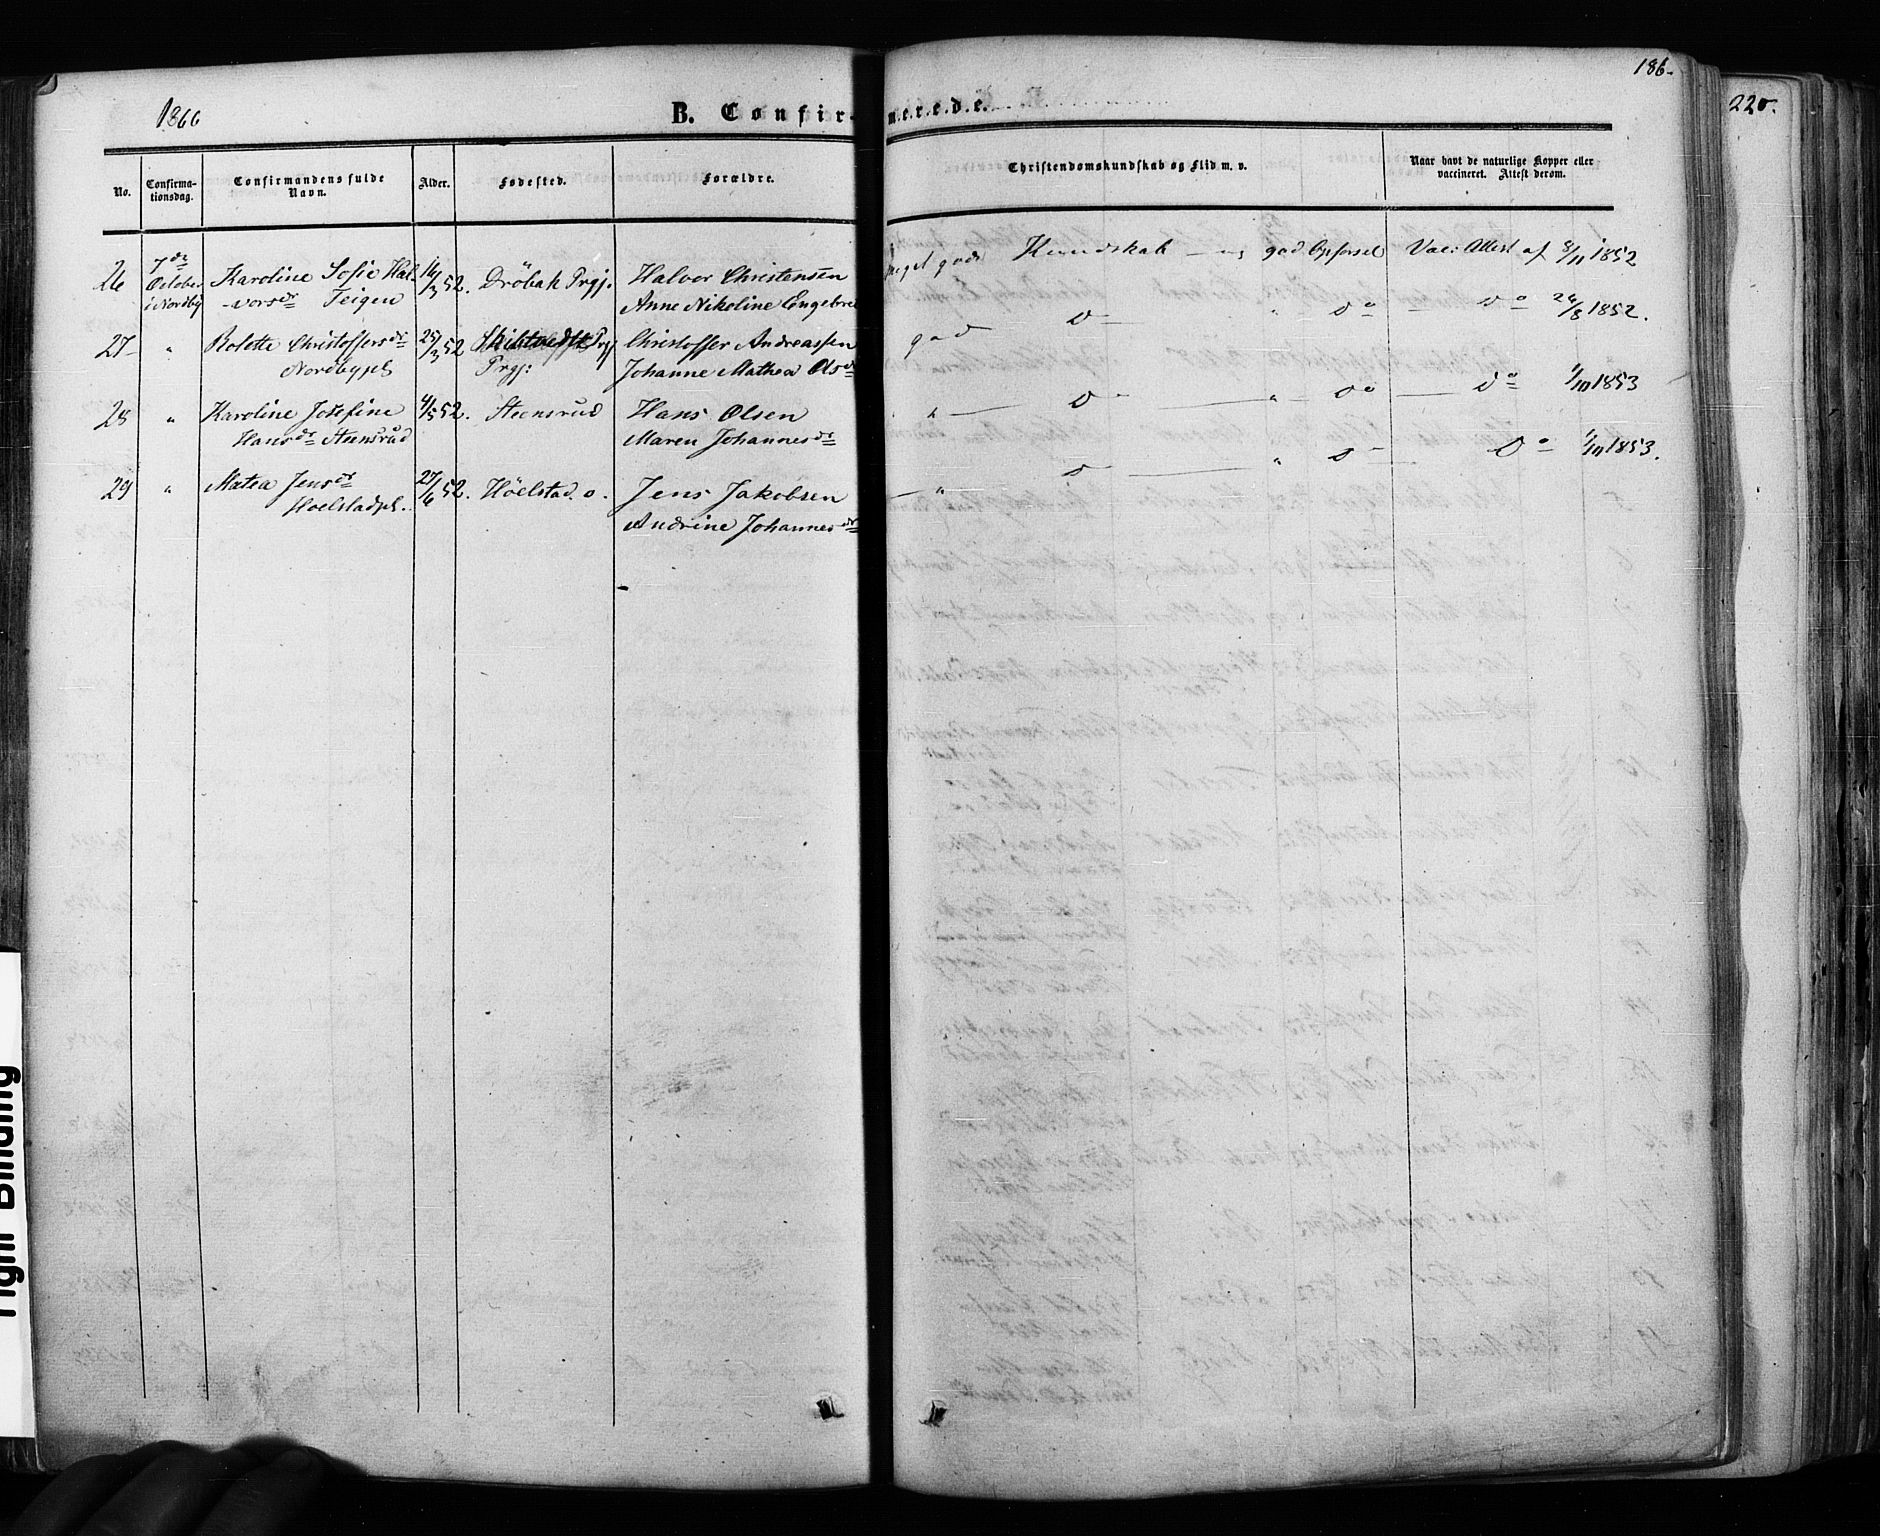 1866
B. Confir-
merede.
186.
220.
No.
Confirma-
tionsdag.
Confirmandens fulde
Navn.
Alder.
Fødested.
Forældre.
Christendomskundskab og Flid m. v.
Naar havt de naturlige Kopper eller
vaccineret. Attest derom.
26 7de October i Nordby Karoline Sofie Hal-
vorsdr Teigen 16/3 52. Dröbak Prgj. Halvor Christensen
Anne Nikoline Engebre
meget god Kundskab — og god Opførsel Vac: Attest af 8/11 1852
27 " Rolette Christoffersdr
Nordbypl 25/3 52 Prgj: Christoffer Andreassen
Johanne Mathea Olsdr
god do " do do 24/8 1852.
28 " Karoline Josefine
Hansdr Steensrud 4/5 52. Steensrud Hans Olsen
Maren Johannesdr
" do " do do 1/10 1853
29 " Matea Jensdr
Hoelstadpl. 27/6 52. Höelstad. o. Jens Jakobsen
Andrine Johannesdr
" do " do do 1/11 1853.
Tight Binding